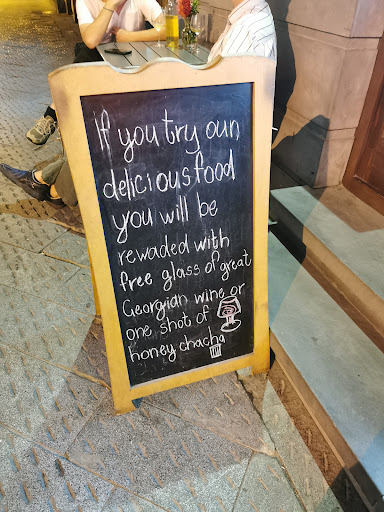 If you try oun
delicious food
you will be
rewaded with
free glass of great
Georgian wine or
one shot of
honey chacha